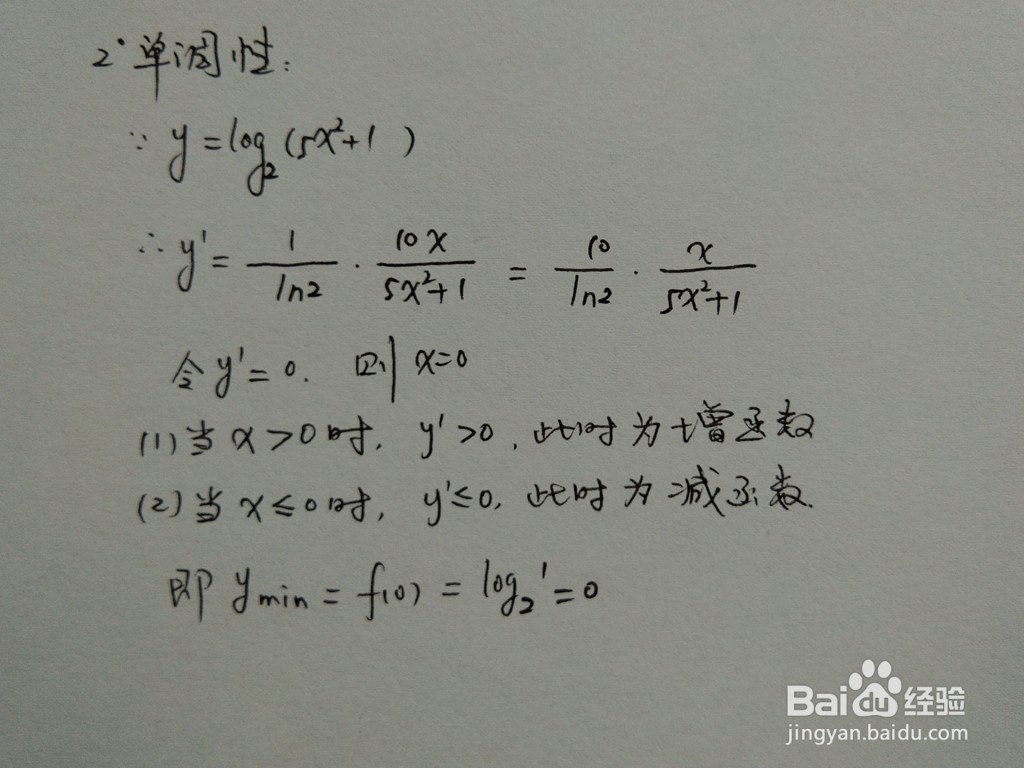 2° 单调性:
∵ y=log₂(5x²+1)
∴ y' = 1/ln2 · 10x/5x²+1 = 10/ln2 · x/5x²+1
令 y'=0. 则 x=0
(1) 当 x>0 时, y'>0, 此时为增函数
(2) 当 x≤0 时, y'≤0, 此时为减函数.
即 y min = f(0) = log₂¹ = 0
Baidu 经验
jingyan.baidu.com